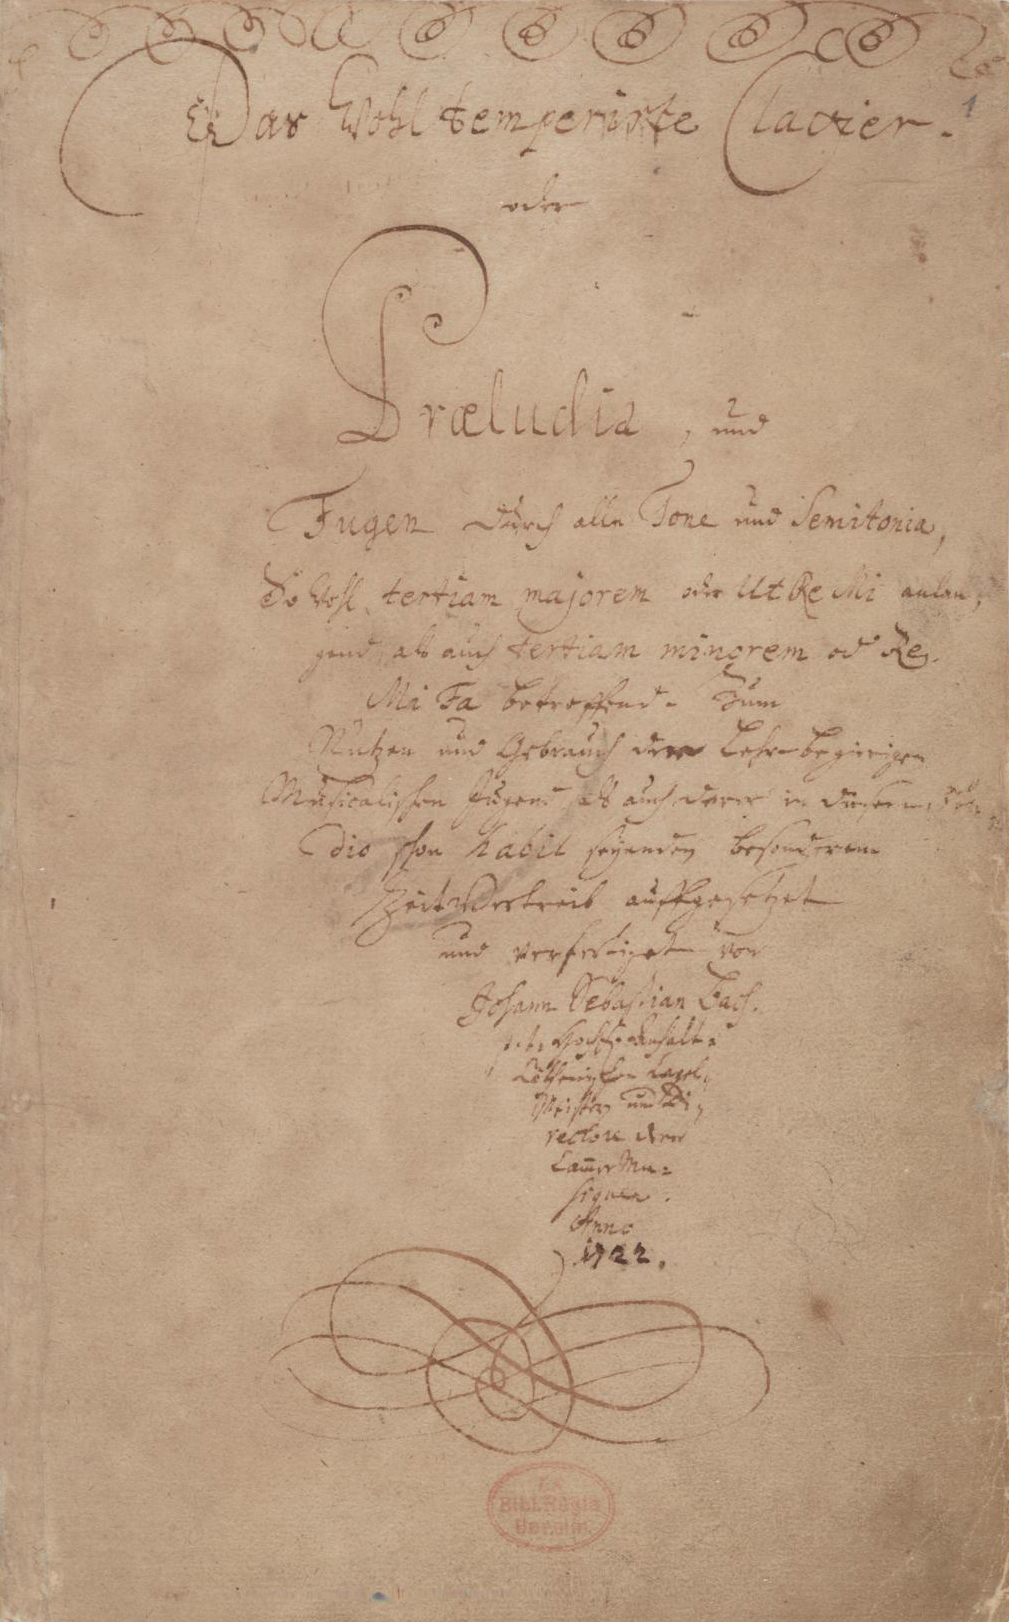 1
Das Wohltemperirte Clavier.
oder
Præludia, und
Fugen durch alle Tone und Semitonia,
So wohl tertiam majorem oder Ut Re Mi anlan,
gend, als auch tertiam minorem od Re
Mi Fa betreffend. Zum
Nutzen und Gebrauch der Lehrbegierigen
Musicalischen Jugend, als auch derer in diesem stu,
dio schon habil seyenden besonderem
ZeitVertreib auffgesetzet
und verfertiget von
Johann Sebastian Bach.
p. t. HochF. Anhalt-
Cöthenischen Capel,
Meistern und Di,
rectore derer
Cam̅er Mu-
siquen.
Anno
1722.
Bibl. Regia
Berolin.